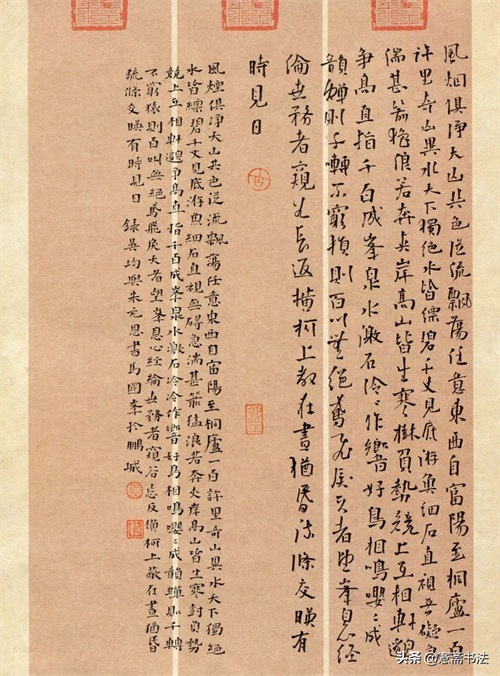 風烟俱淨天山共色從流飄蕩任意東西自富陽至桐廬一百
許里奇山異水天下獨絕水皆縹碧千丈見底游魚細石直視無礙急
湍甚箭猛浪若奔夾岸高山皆生寒樹負勢競上互相軒邈
爭高直指千百成峯泉水激石泠〻作響好鳥相鳴嚶〻成
韻蟬則千轉不窮猿則百叫無絕鳶飛戾天者望峯息心經
綸世務者窺谷忘返橫柯上蔽在晝猶昏疏條交映有
時見日
風烟俱淨天山共色從流飄蕩任意東西自富陽至桐廬一百許里奇山異水天下獨絕
水皆縹碧千丈見底游魚細石直視無礙急湍甚箭猛浪若奔夾岸高山皆生寒樹負勢
競上互相軒邈爭高直指千百成峯泉水激石泠泠作響好鳥相鳴嚶〻成韻蟬則千轉
不窮猿則百叫無絕鳶飛戾天者望峯息心經綸世務者窺谷忘反橫柯上蔽在晝猶昏
疏條交映有時見日 錄吳均與朱元思書馬國峯於鵬城
头条 @斋书法